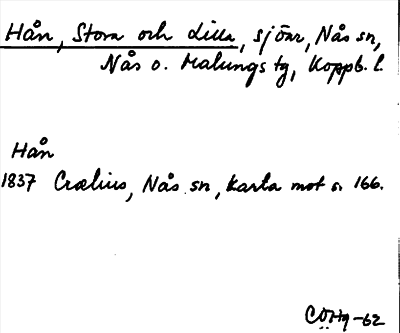 Hån, Stora och Lilla, sjöar, Nås sn,
Nås o. Malungs tg, Koppb. l.
Hån
1837 Crælius, Nås sn, karta mot s. 166.
CÖHg-62